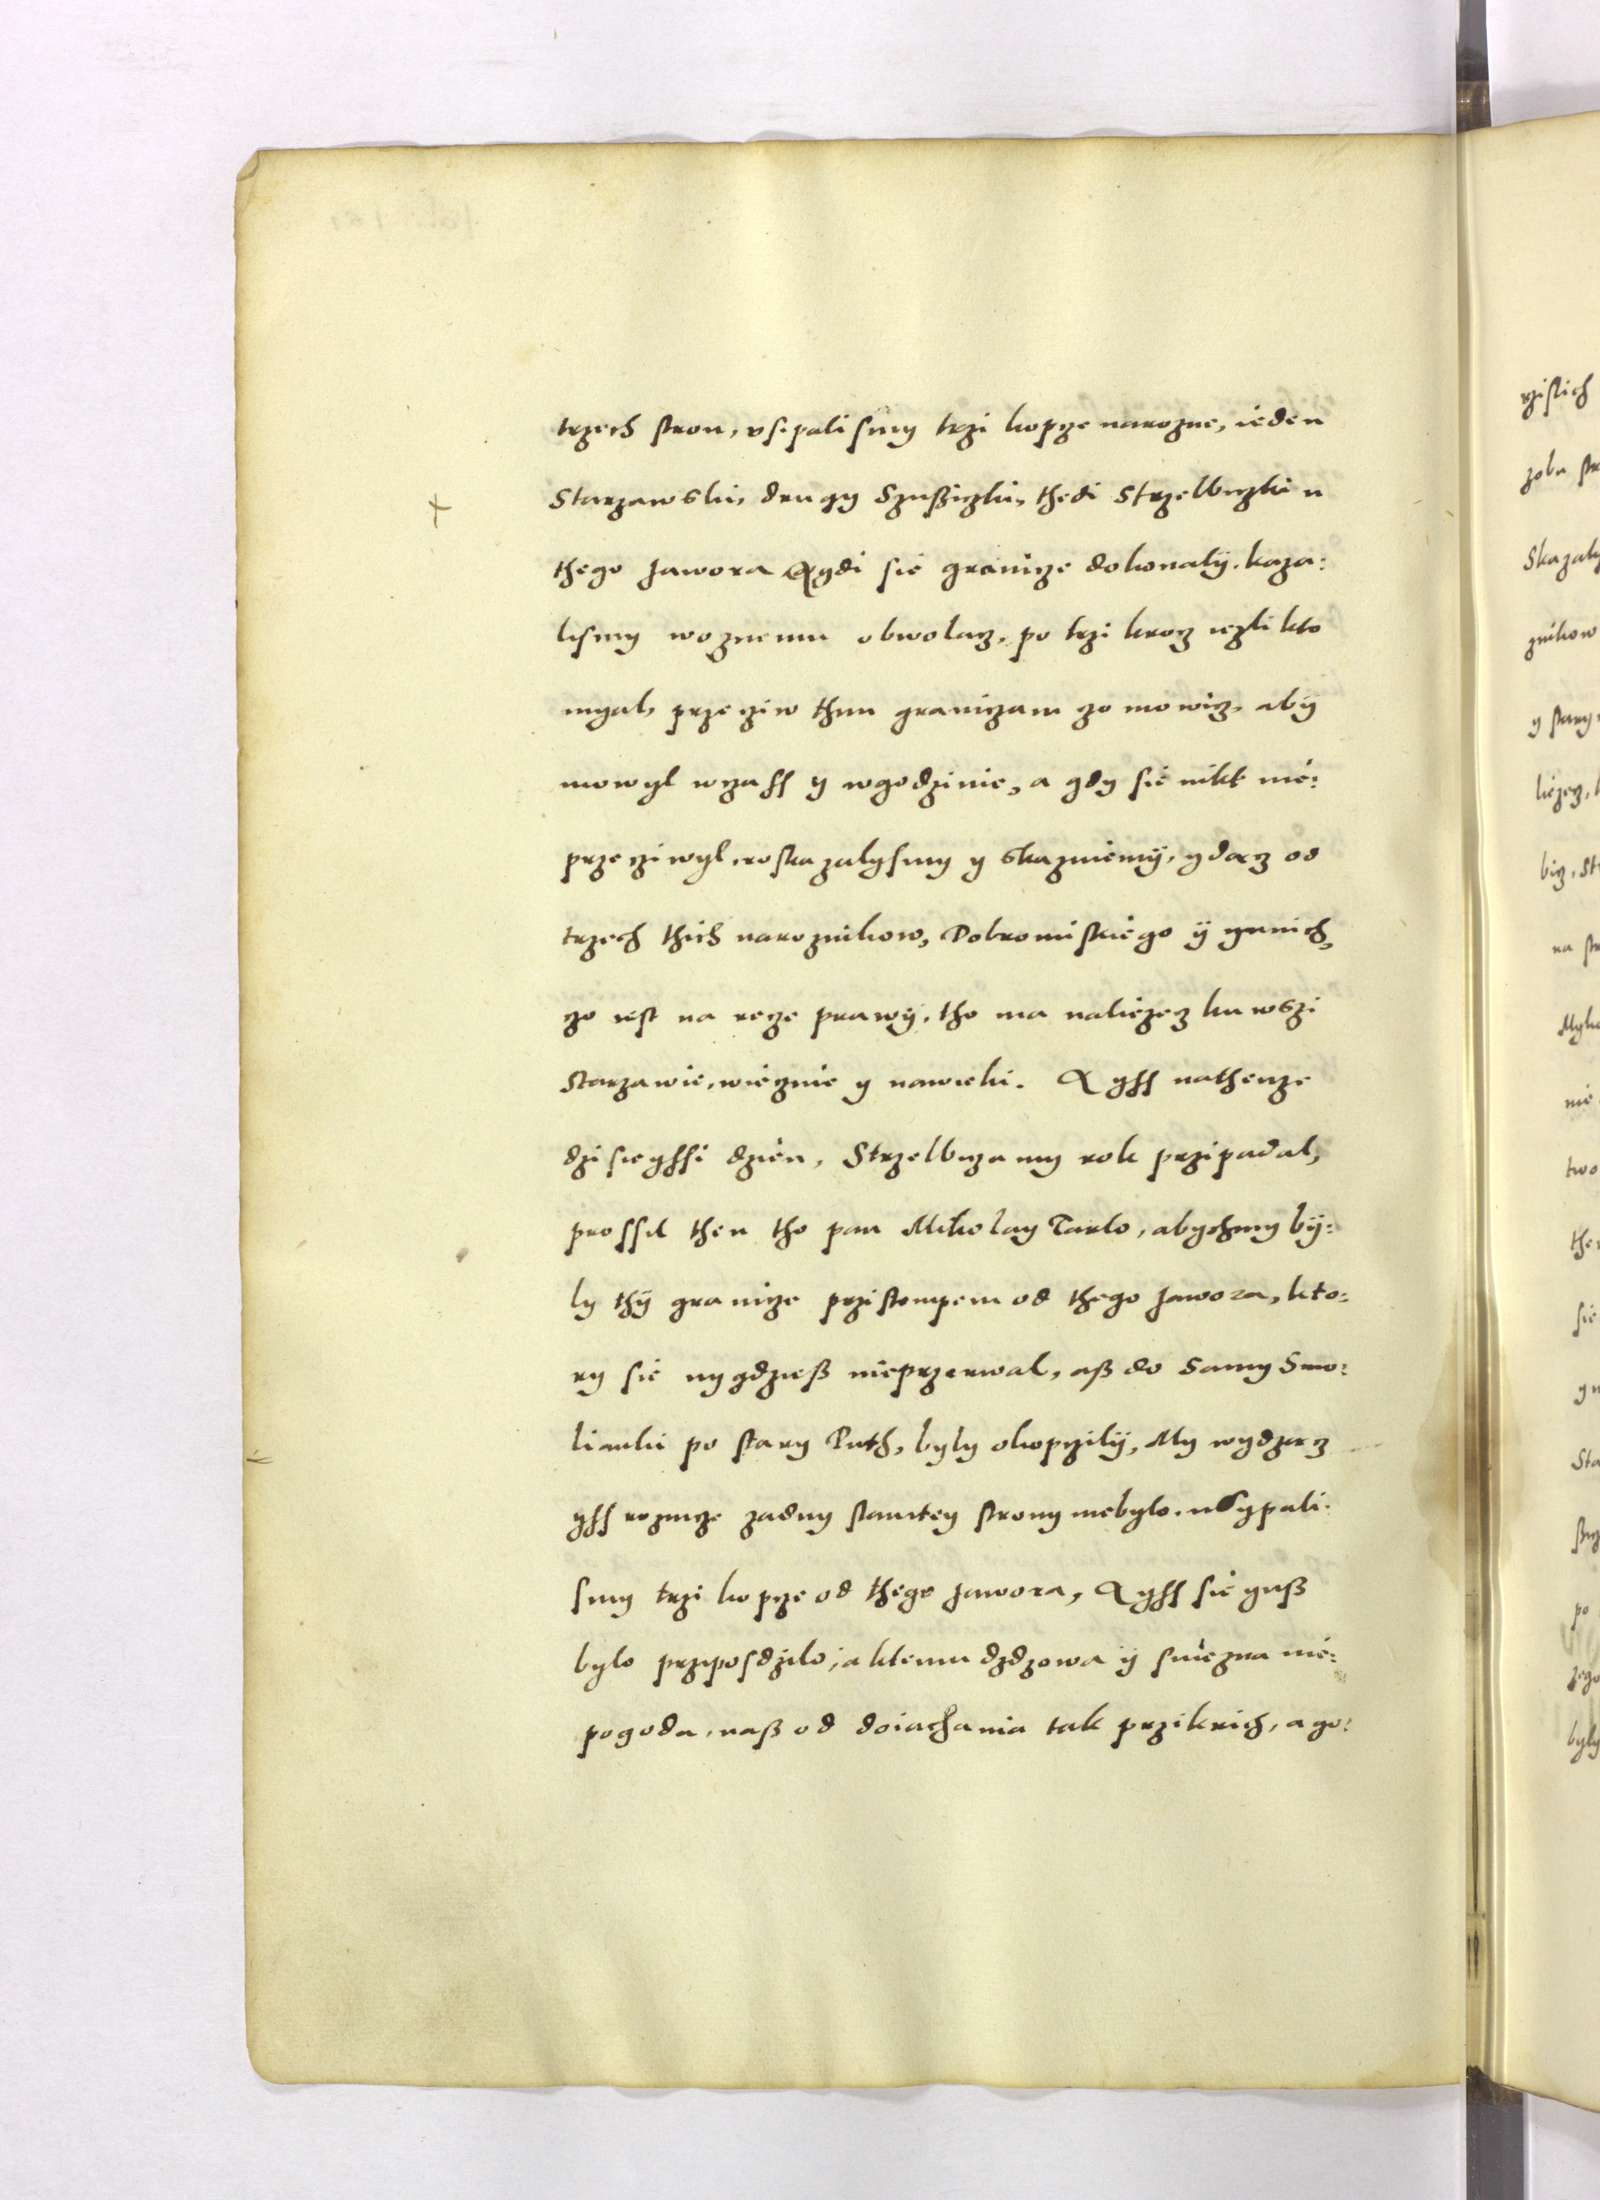 trzech stron, vsipali smy trzi kopcze narozne, ieden
Starzawski, drugy Szusziczki, thedi Strzelbiczki u
thego Jawora A gdi sie granicze dokonaly. kaza:
lismy woznemu obwolacz, po trzi krocz iezli kto
myal, przecziw thim graniczam czo mowicz, aby
mowyl wczass y wgodzinie, a gdy sie nikt nie:
przecziwyl, roskazalysmy y skazuiemy, ydacz od
trzech thich naroznikow, Dobromiskiego y ynnich,
czo iest na recze prawy, tho ma naliezecz ku wszi
Starzawie, wiecznie y nawieki. A yss nathenze
dzisieyssi dzien, Strzelbiczanny rok przipadal,
prossil then tho pan Mikolay Tarlo, abychmy by:
ly thy granicze przistempem od thego Jawora, kto:
ry sie nygdziesz nieprzerwal, asz do Samy Smo:
lianki po stary Puth, byly okopczily, My wydzacz
yss roznicze zadny stamtey strony niebylo. usypali.
smy trzi kopcze od thego Jawora, A yss sie yusz
bylo przyposdzilo, a ktemu dzdzowa y sniezna nie:
pogoda, nasz od doiachania tak przikrich, a go: